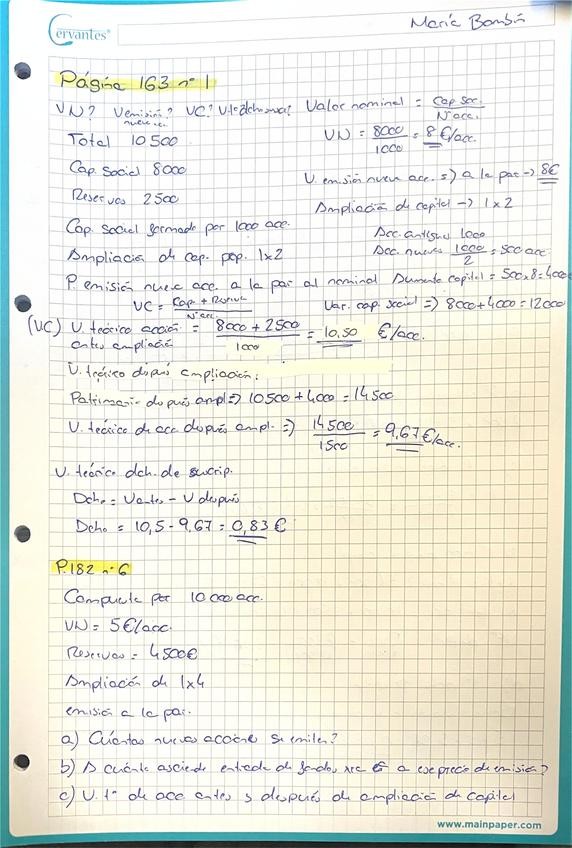 Cervantes®
María Bombín
Página 163 nº 1
VN? V emisión? VC? V. teó dcho susc? Valor nominal = Cap soc. / Nº acc.
nuevas acc.
VN = 8000 / 1000 = 8 €/acc.
Total 10500
V. emisión nueva acc. => a la par -> 8€
Cap. Social 8000
Reservas 2500
Ampliación de capital -> 1x2
Cap social formado por 1000 acc.
Acc. antiguas 1000
Acc. nuevas 1000 / 2 = 500 acc
Ampliación de cap. prop. 1x2
P. emisión nueva acc. a la par al nominal Aumento capital = 500 x 8 = 4000
VC = Cap + Reserva / Nº acc.
Var. cap. social => 8000 + 4000 = 12000
(VC) V. teórico acción = 8000 + 2500 / 1000 = 10,50 €/acc.
antes ampliación
V. teórico después ampliación:
Patrimonio después ampl => 10500 + 4000 = 14500
V. teórico de acc después ampl. => 14500 / 1500 = 9,67 €/acc.
V. teórico dch. de suscrip.
Dcho = Vantes - V después
Dcho = 10,5 - 9,67 = 0,83 €
P.182 nº 6
Compuesta por 10 000 acc.
VN = 5 €/acc.
Reservas = 4500€
Ampliación de 1x4
emisión a la par.
a) Cuántas nuevas acciones se emiten?
b) A cuánto asciende entrada de fondos a ese precio de emisión?
c) V. tº de acc antes y después de ampliación de capital
www.mainpaper.com